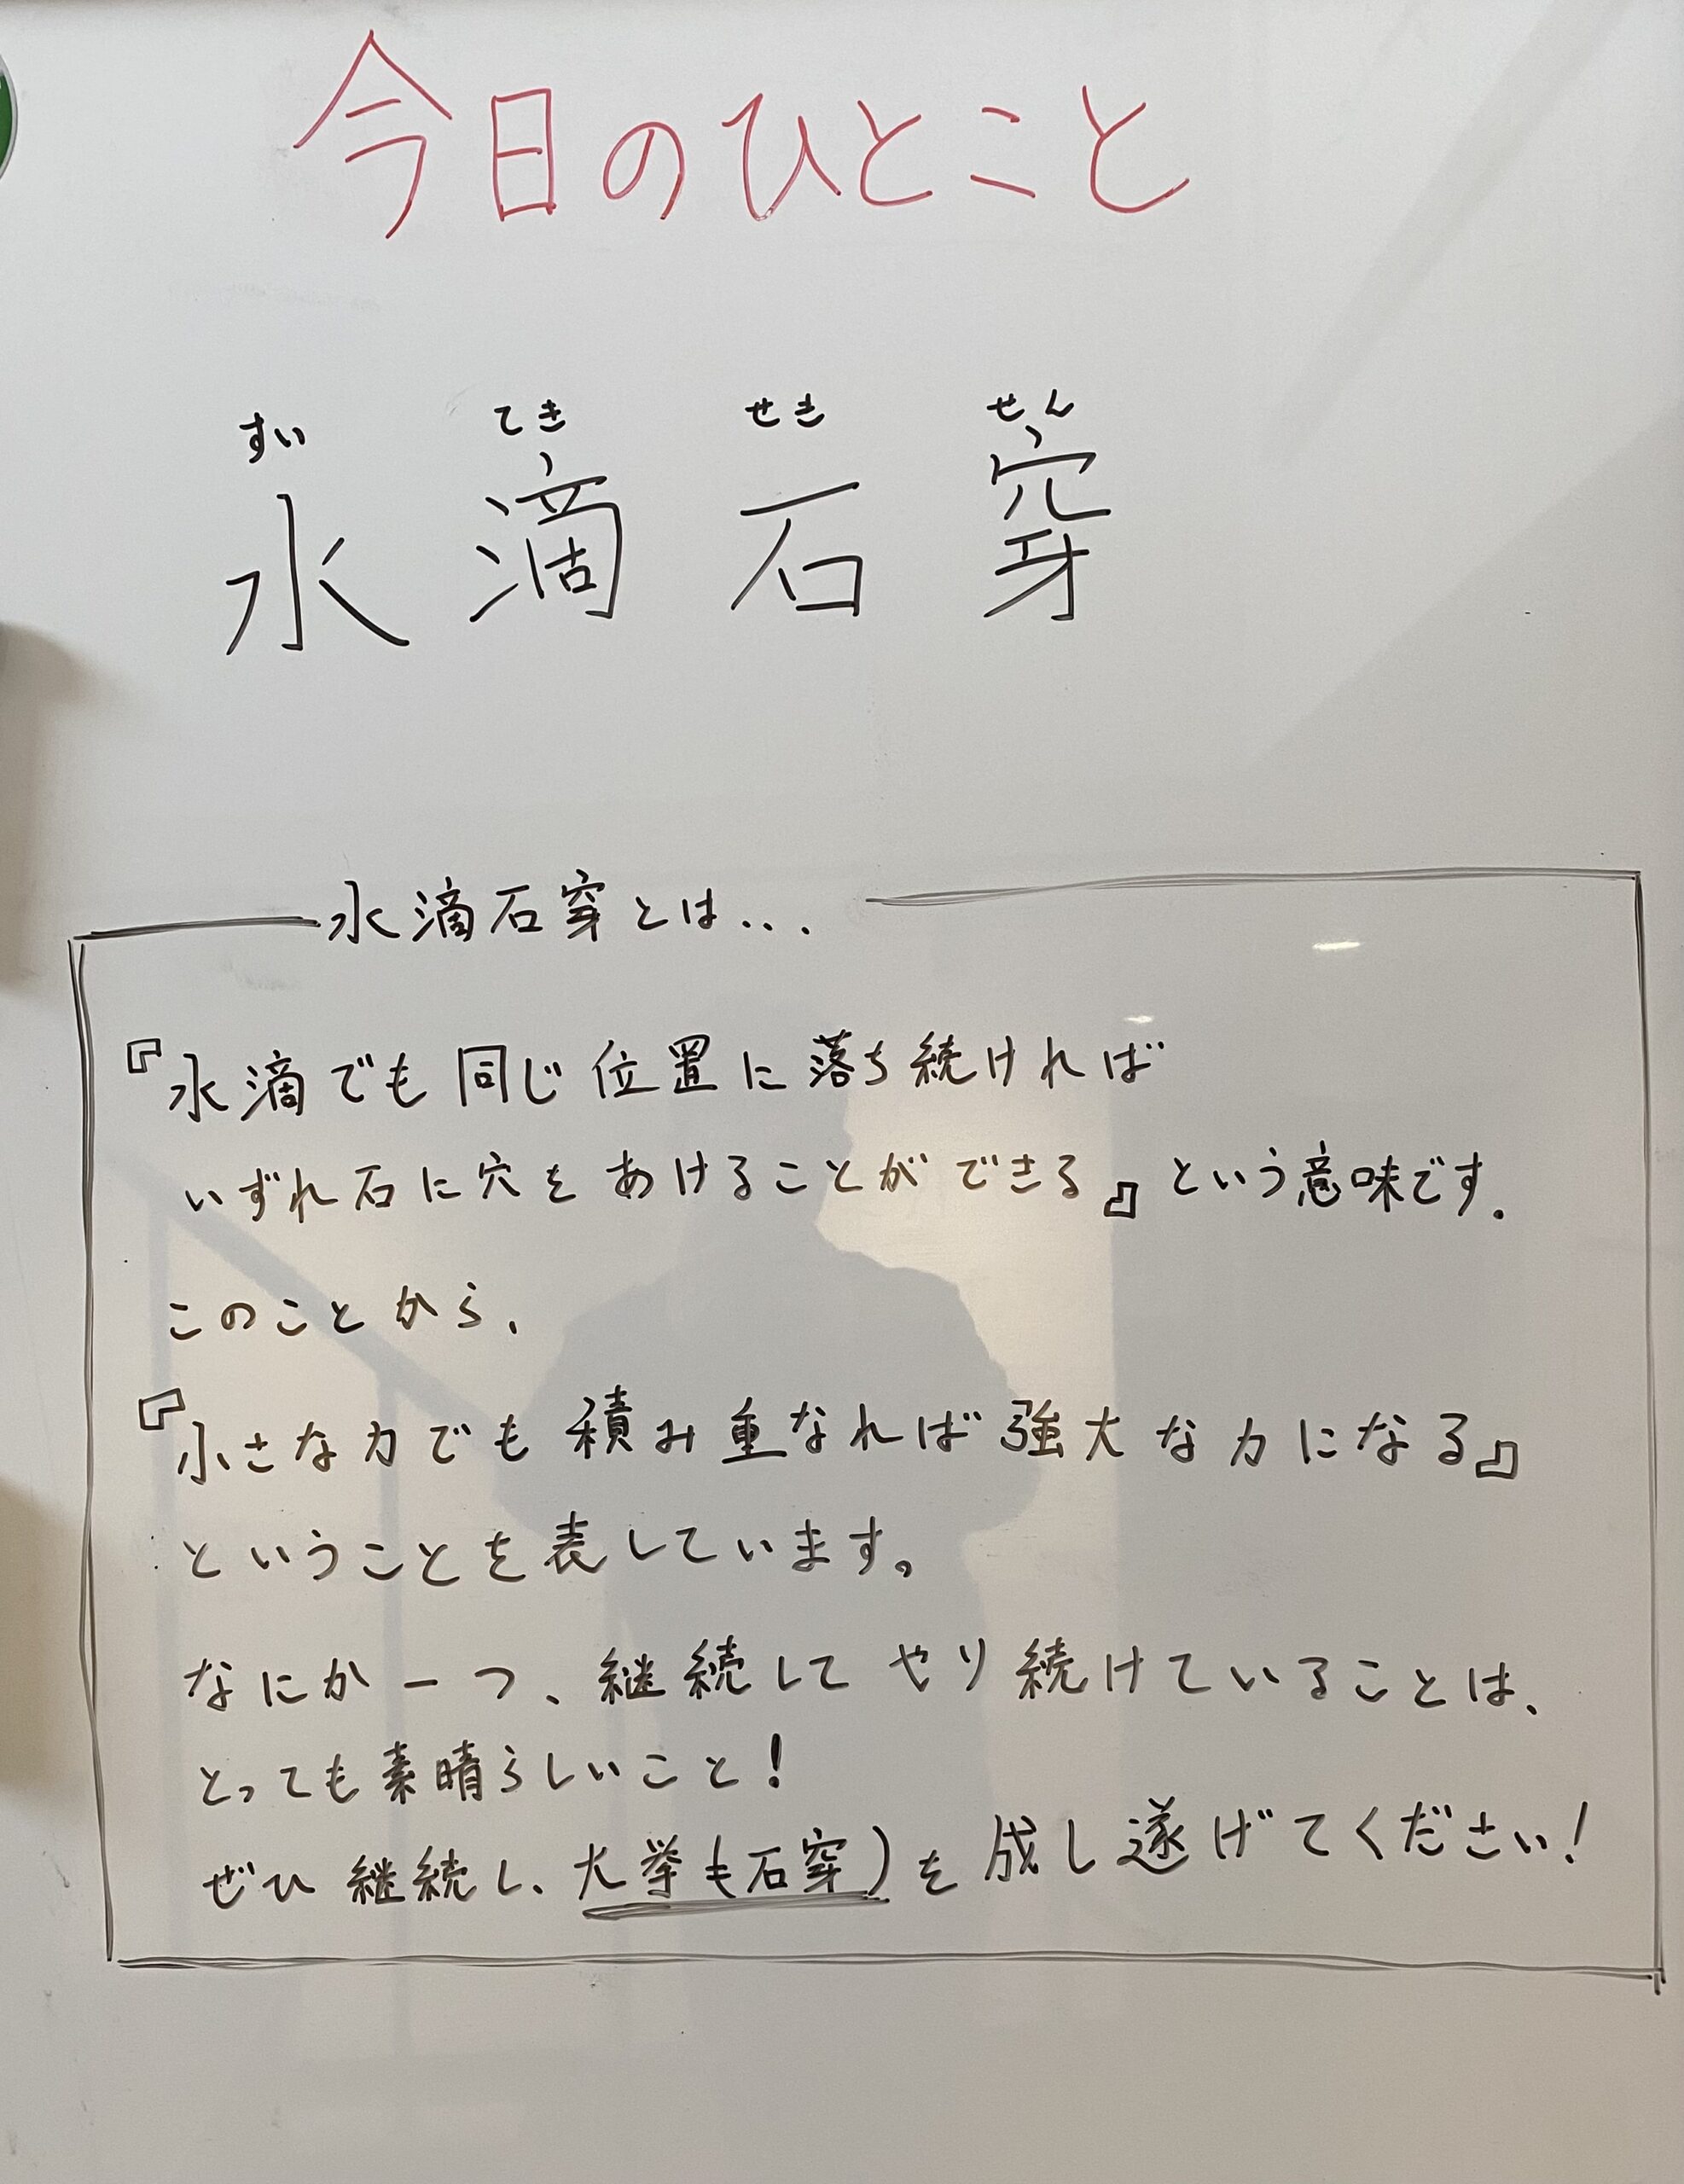 今日のひとこと
すい てき せき せん
水滴石穿
水滴石穿とは...
『水滴でも同じ位置に落ち続ければ
いずれ石に穴をあけることができる』という意味です.
このことから、
『小さな力でも積み重なれば強大な力になる』
ということを表しています。
なにか一つ、継続してやり続けていることは、
とっても素晴らしいこと!
ぜひ継続し、大挙も石穿)を成し遂げてください!